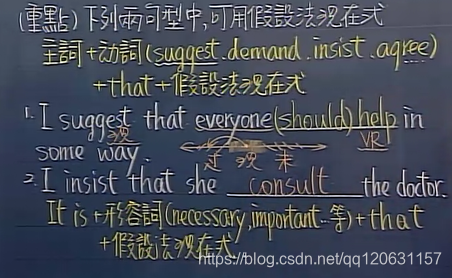 (重點)下列兩句型中,可用假設法現在式
主詞+动詞(suggest.demand.insist.agree)
+that+假設法現在式
1. I suggest that everyone(should)help in
some way. 現 过 現 未 VR
2. I insist that she consult the doctor.
It is+形容詞(necessary,important..等)+that
+假設法現在式
https://blog.csdn.net/qq120631157